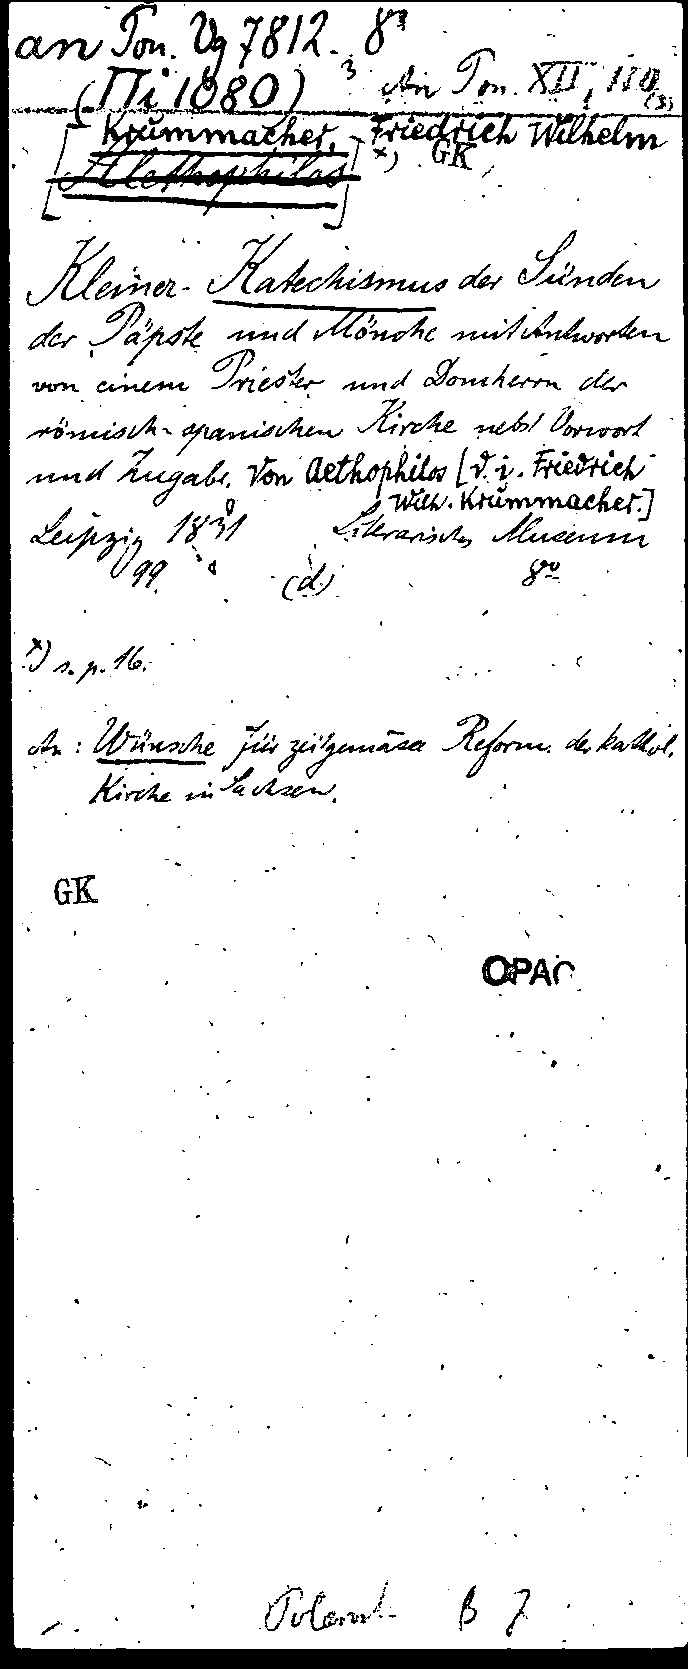 an Pon. Vg 7812. 8°
(IIi 1080) 3 An Pon. XII, 110 (3)
[Krummacher,] Friedrich Wilhelm
[Alethophilos] x) GK
Kleiner Katechismus der Sünden
der Päpste und Mönche mit Antworten
von einem Priester und Domherrn der
römisch-spanischen Kirche nebst Vorwort
und Zugabe. Von Aethophilos [d. i. Friedrich
Wilh. Krummacher.]
Leipzig 1831 Literarisches Museum
99. (d.) 8°
x) s. p. 16.
An: Wünsche für zeitgemäse Reform. der kathol.
Kirche in Sachsen.
GK
OPAC
Polem. B 7